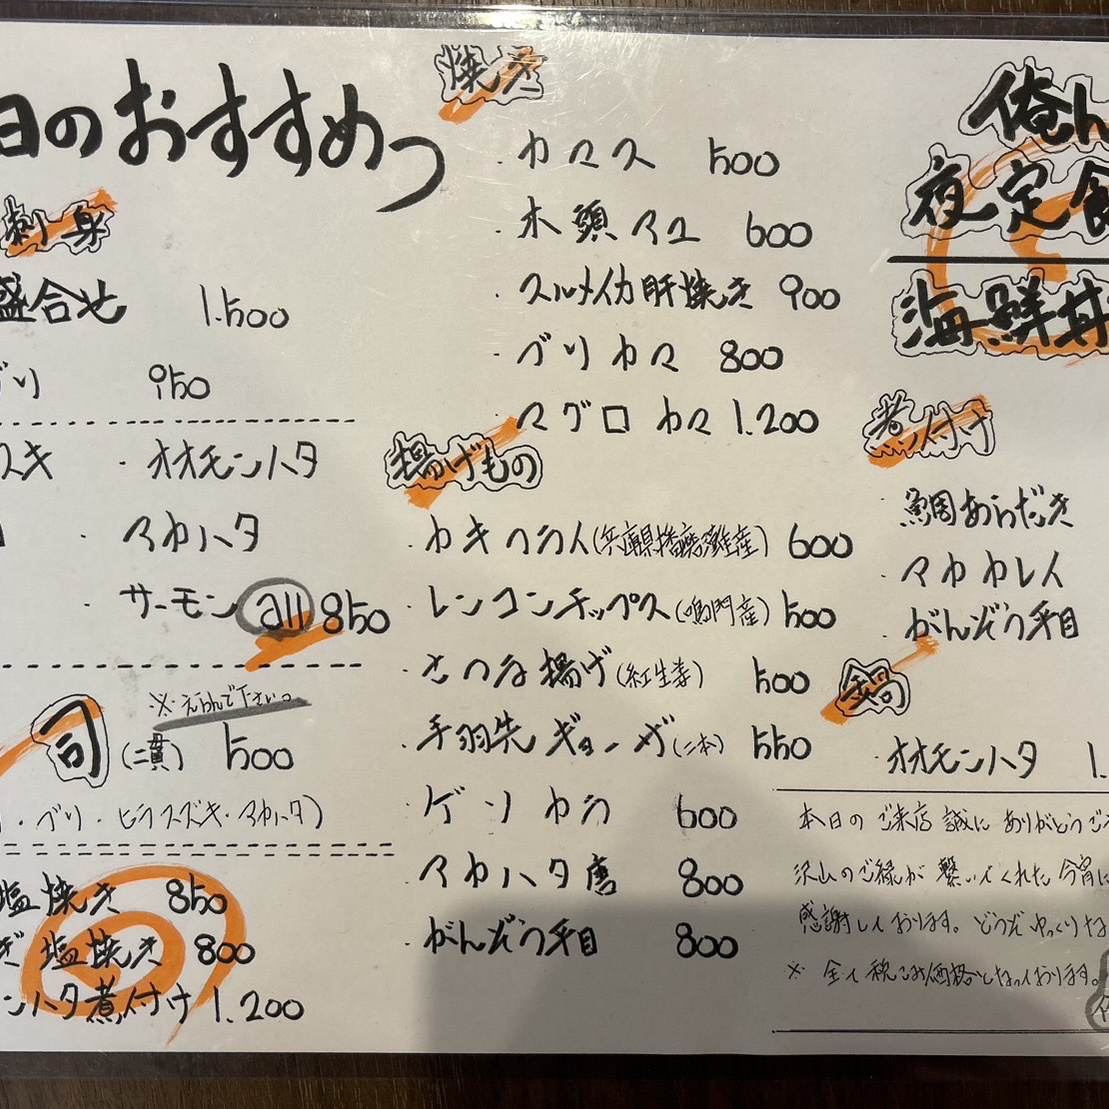 日のおすすめっ
刺身
盛合せ 1.500
ブリ 950
スキ ・オオモンハタ
・アカハタ
・サーモン all 850
司 (二貫) 500
※えらんで下さい。
・ブリ・ヒラスズキ・アカハタ)
塩焼き 850
ぎ塩焼き 800
ンハタ煮付け 1.200
焼き
・カマス 500
・木頭マユ 600
・スルメイカ肝焼き 900
・ブリカマ 800
・マグロカマ 1.200
揚げもの
・カキフライ(兵庫県播磨灘産) 600
・レンコンチップス(鳴門産) 500
・さつま揚げ(紅生姜) 500
・手羽先ギョーザ(二本) 550
・ゲソカラ 600
・アカハタ唐 800
・がんぞう平目 800
俺ん
夜定食
海鮮丼
煮付け
・鯛あらだき
・マカカレイ
・がんぞう平目
鍋
・オオモンハタ 1.
本日のご来店誠にありがとうござ
沢山のご縁が繋いでくれた今宵に
感謝しております。どうぞゆっくりな
※全て税込み価格となっております。